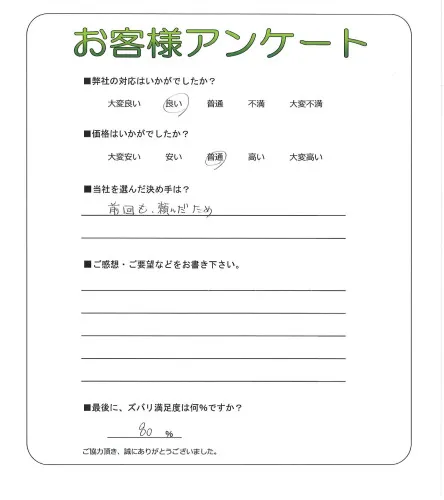 お客様アンケート
■弊社の対応はいかがでしたか？
大変良い 良い 普通 不満 大変不満
■価格はいかがでしたか？
大変安い 安い 普通 高い 大変高い
■当社を選んだ決め手は？
前回も、頼んだため
■ご感想・ご要望などをお書き下さい。
■最後に、ズバリ満足度は何%ですか？
80 %
ご協力頂き、誠にありがとうございました。